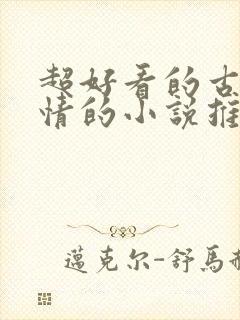 超好看的古
情的小說推
邁克尔-舒馬赫